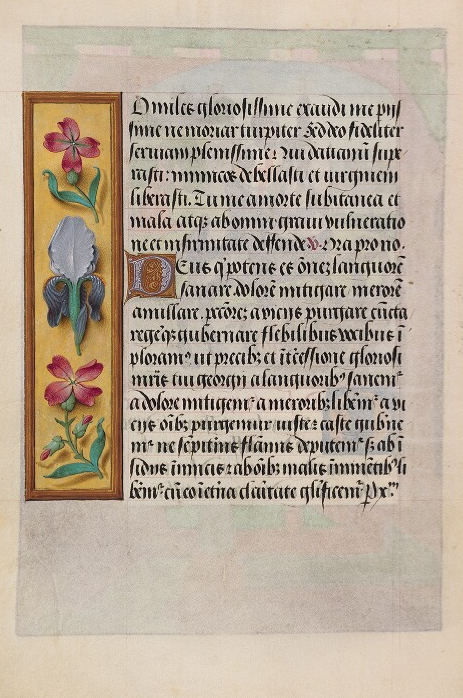 O miles gloriosissime exaudi me pijs
sime ne moriar turpiter Sed deo fideliter
seruiam plenissime: Qui datianū supe
rasti: inimicos debellasti et virginem
liberasti. Tu me a morte subitanea et
mala atq; ab omni graui vulneratio
ne et infirmitate deffende v. Ora pro no.
Deus q potens es ōnes languores
sanare dolorē mitigare merorē
a viciis purgare cūcta
regeq; gubernare flebilibus vocibus ī
ploramꝰ ut precibꝫ et ītcessione gloriosi
mr̄is tui georgij a languoribꝰ sanemꝰ
a dolore mitigemꝰ a meroribꝫ libemꝰ a vi
ciis oībꝫ purgemur iuste: caste gubne
mꝰ ne sēpitnis flāmis deputemꝰ sꝫ ab ī
sidijs inimicis: ab oībꝫ malis libe
cū coīetna claritate glificemꝰ P x̄m